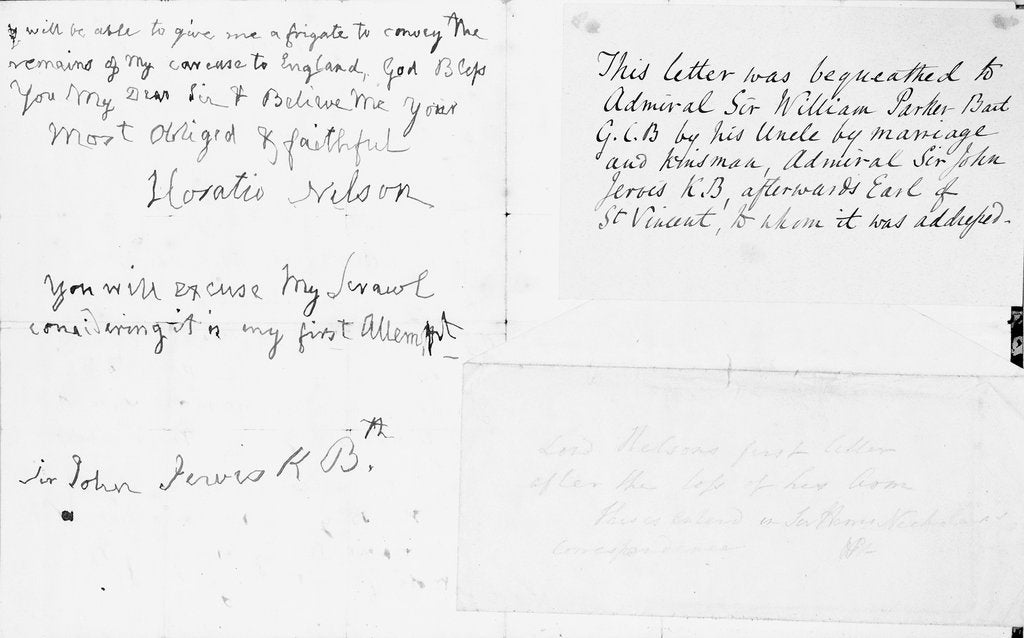 y will be able to give me a frigate to convey the
remains of my carcase to England, God Bless
You My Dear Sir & Believe Me Your
Most Obliged & faithful
Horatio Nelson
You will excuse My Scrawl
considering it is my first Attempt
Sir John Jervis K B.th
This letter was bequeathed to
Admiral Sir William Parker Bart
G.C.B by his Uncle by marriage
and kinsman, Admiral Sir John
Jervis K.B, afterwards Earl of
St Vincent, to whom it was addressed.
Lord Nelsons first letter
after the loss of his Arm
in Sir Harris Nicholas's
correspondence